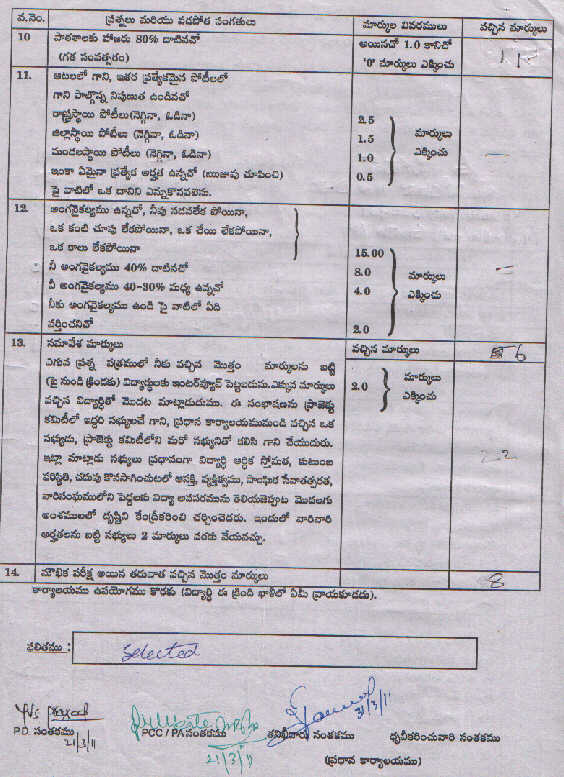 వ.నెం. ప్రశ్నలు మరియు వడపోత సంగతులు మార్కుల వివరములు వచ్చిన మార్కులు
10 పాఠశాలకు హాజరు 80% దాటినచో అయినచో 1.0 కానిచో
(గత సంవత్సరం) '0' మార్కులు ఎక్కించు
11. ఆటలలో గాని, ఇతర ప్రత్యేకమైన పోటీలలో
గాని పాల్గొన్న నిపుణత ఉండినచో
రాష్ట్రస్థాయి పోటీలు(నెగ్గినా, ఓడినా) 2.5
జిల్లాస్థాయి పోటీలు (నెగ్గినా, ఓడినా) 1.5 మార్కులు
మండలస్థాయి పోటీలు (నెగ్గినా, ఓడినా) 1.0 ఎక్కించు
ఇంకా ఏమైనా ప్రత్యేక అర్హత ఉన్నచో (ఋజువు చూపించి) 0.5
పై వాటిలో ఒక దానిని ఎన్నుకొనవలెను.
12. అంగవైకల్యము ఉన్నచో, నీవు నడవలేక పోయినా,
ఒక కంటి చూపు లేకపోయినా, ఒక చేయి లేకపోయినా,
ఒక కాలు లేకపోయినా 15.00
నీ అంగవైకల్యము 40% దాటినచో 8.0 మార్కులు
నీ అంగవైకల్యము 40-30% మధ్య ఉన్నచో 4.0 ఎక్కించు
నీకు అంగవైకల్యము ఉండి పై వాటిలో ఏది
వర్తించనిచో 2.0
13. సమావేశ మార్కులు వచ్చిన మార్కులు 6
ఎగువ ప్రశ్న పత్రములో నీకు వచ్చిన మొత్తం మార్కులను బట్టి మార్కులు
(పై నుండి క్రిందకు) విద్యార్థులకు ఇంటర్వ్యూలో పెట్టబడును.ఎక్కువ మార్కులు 2.0 ఎక్కించు
వచ్చిన విద్యార్థితో మొదట మాట్లాడుదుము. ఈ సంభాషణను ప్రాజెక్టు
కమిటీలో ఇద్దరి సభ్యులచే గాని, ప్రధాన కార్యాలయమునుండి వచ్చిన ఒక
సభ్యుడు, ప్రాజెక్టు కమిటీలోని మరో సభ్యునితో కలిసి గాని చేయుదురు.
ఇట్లా మాట్లాడు సభ్యులు ప్రధానంగా విద్యార్థి ఆర్థిక స్తోమత, కుటుంబ 2
పరిస్థితి, చదువు కొనసాగించుటలో ఆసక్తి, వ్యక్తిత్వము, సాంఘిక సేవాతత్పరత,
వారిసంఘములోని పెద్దలకు విద్యా అవసరమును తెలియజెప్పుట మొదలగు
అంశములలో దృష్టిని కేంద్రీకరించి చర్చించెదరు. ఇందులో వారివారి
అర్హతలను బట్టి సభ్యులు 2 మార్కులు వరకు వేయవచ్చు.
14. మౌఖిక పరీక్ష అయిన తదుపాత వచ్చిన మొత్తం మార్కులు 8
కార్యాలయము ఉపయోగము కొరకు (విద్యార్థి ఈ క్రింది ఖాళీలో ఏమీ వ్రాయకూడదు).
ఫలితము : Selected
31/3/11
P.D. సంతకము PCC / PA సంతకము తనిఖీవారి సంతకము ధృవీకరించువారి సంతకము
21/3/11 21/3/11 (ప్రధాన కార్యాలయము)